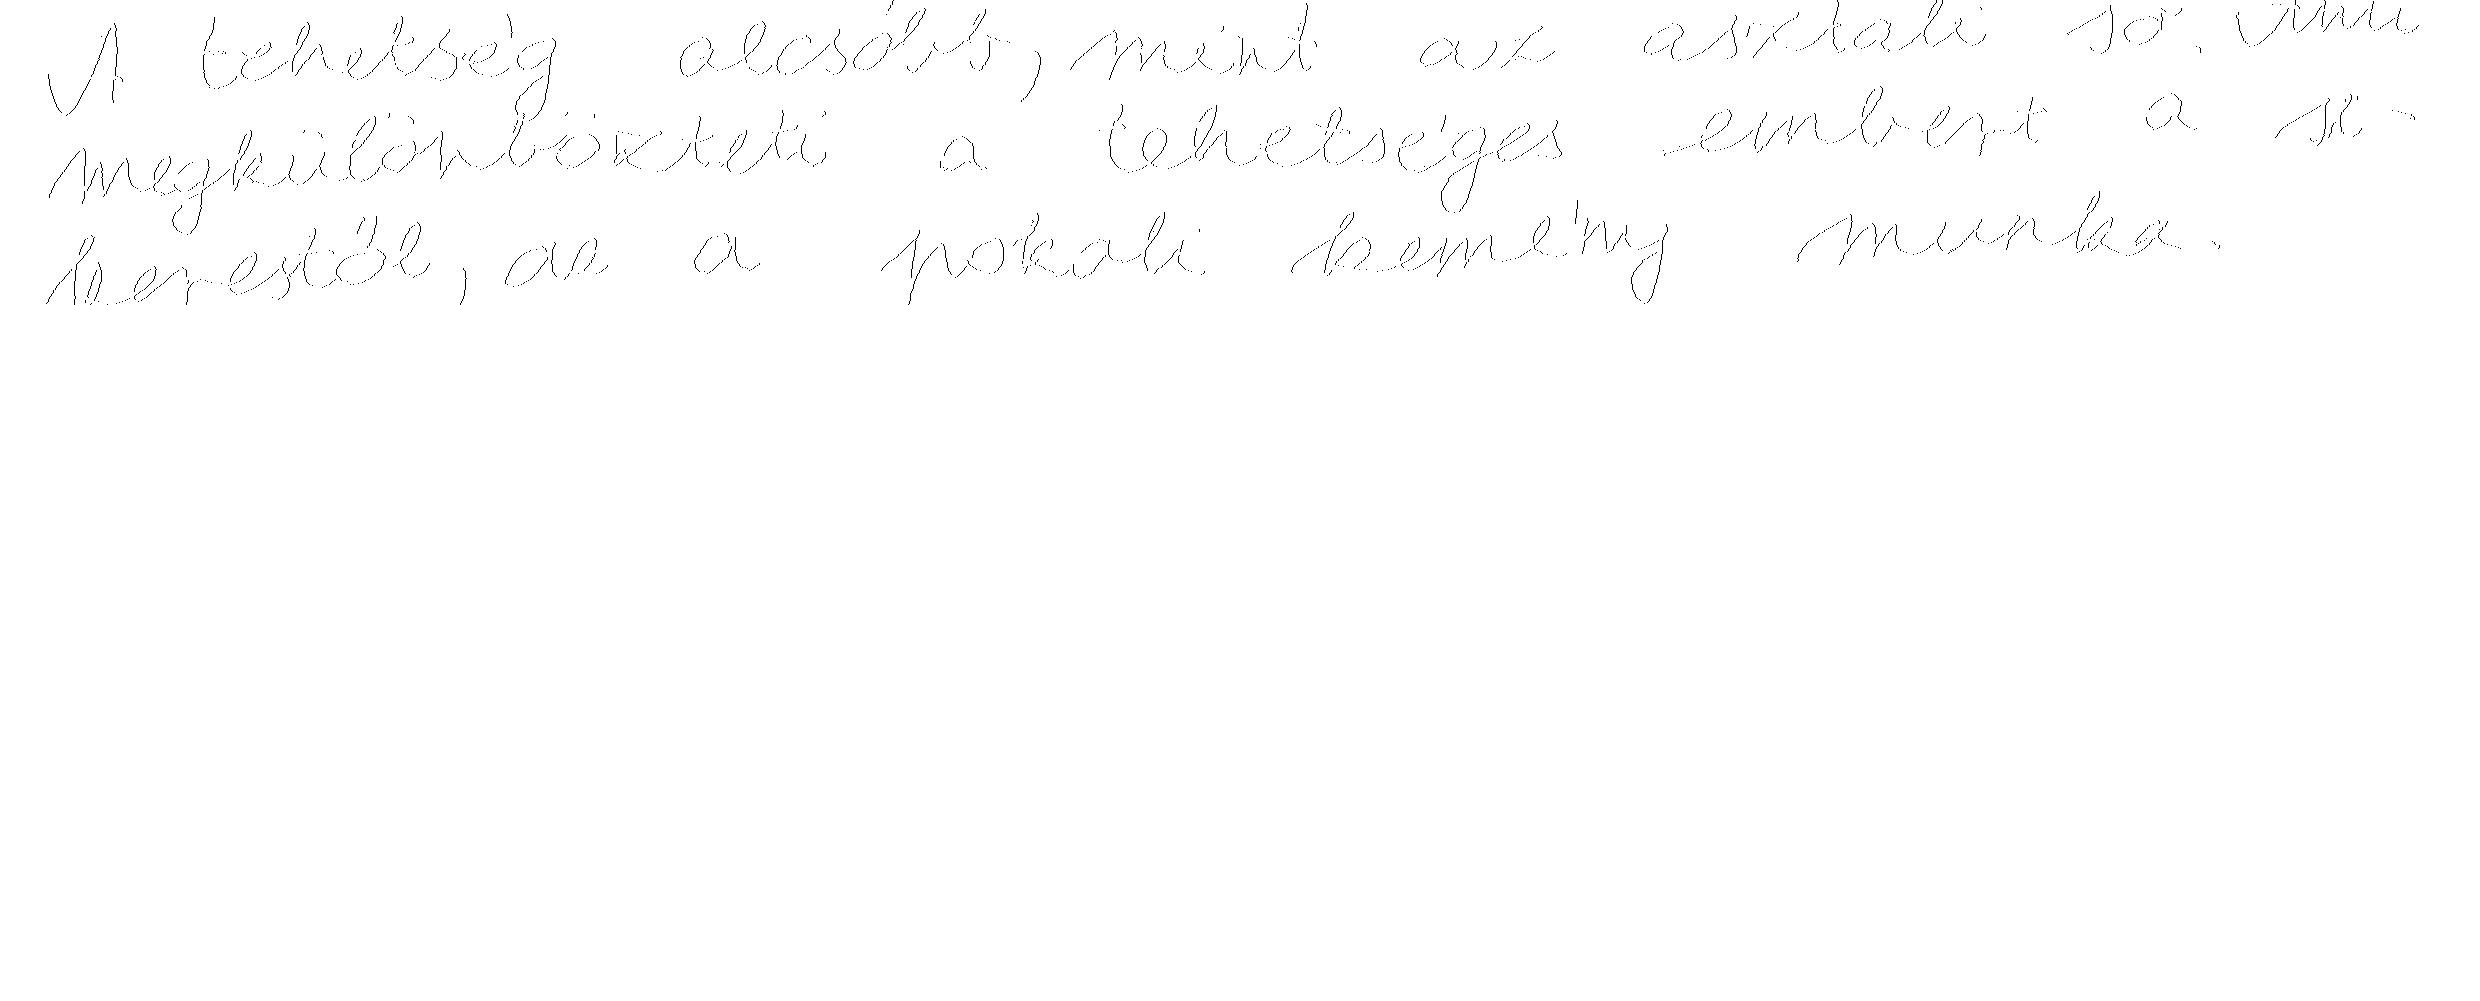 A tehetség olcsóbb, mint az asztali só. Ami
megkülönbözteti a tehetséges embert a si-
kerestől, az a pokoli kemény munka.